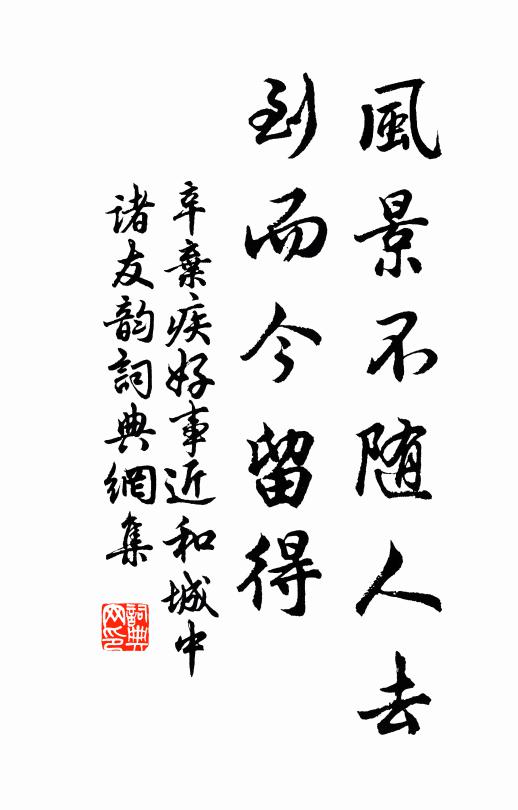 風景不随人去
到而今留得
辛棄疾好事近和城中
诸友韵詞典網集
詞典
网印